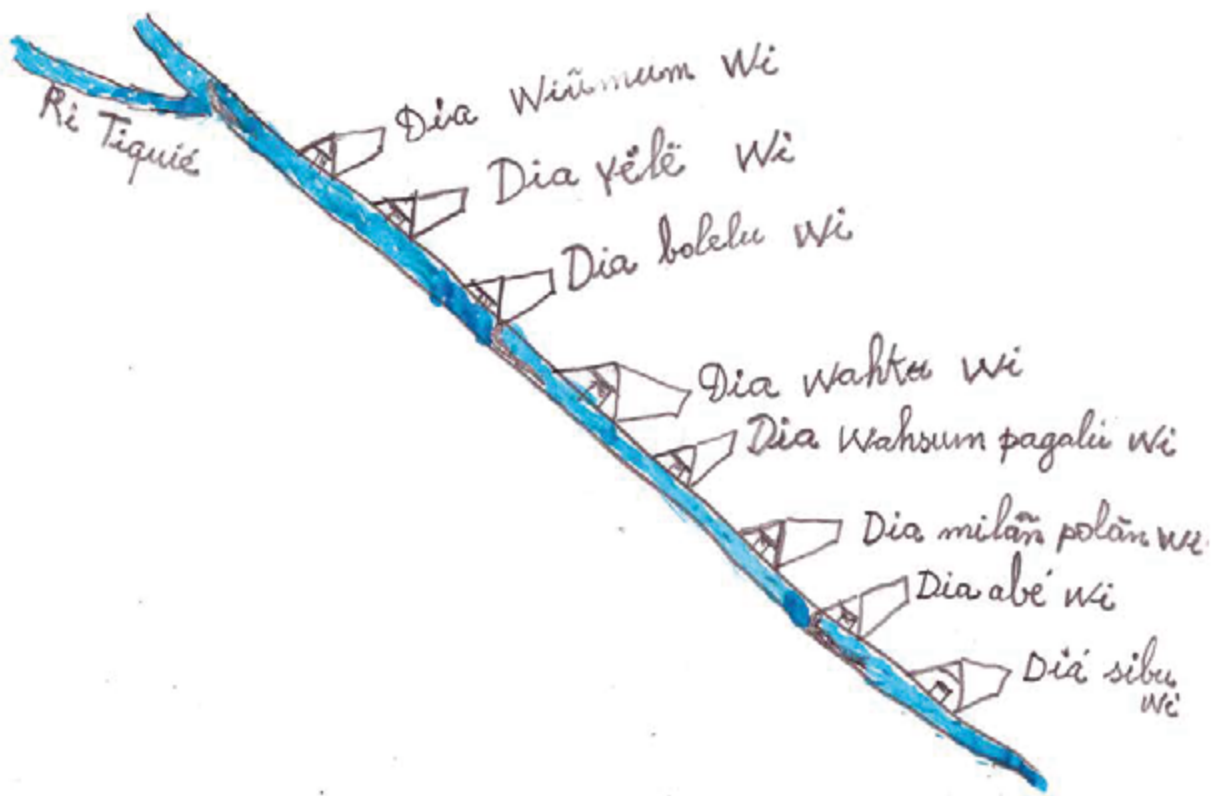 Ri Tiquié
Dia Wiũmum Wi
Dia Yëlë Wi
Dia bolelu Wi
Dia Wahtu Wi
Dia Wahsum pagalú Wi
Dia milãñ polãn Wi
Dia abé Wi
Diá sibu
Wi